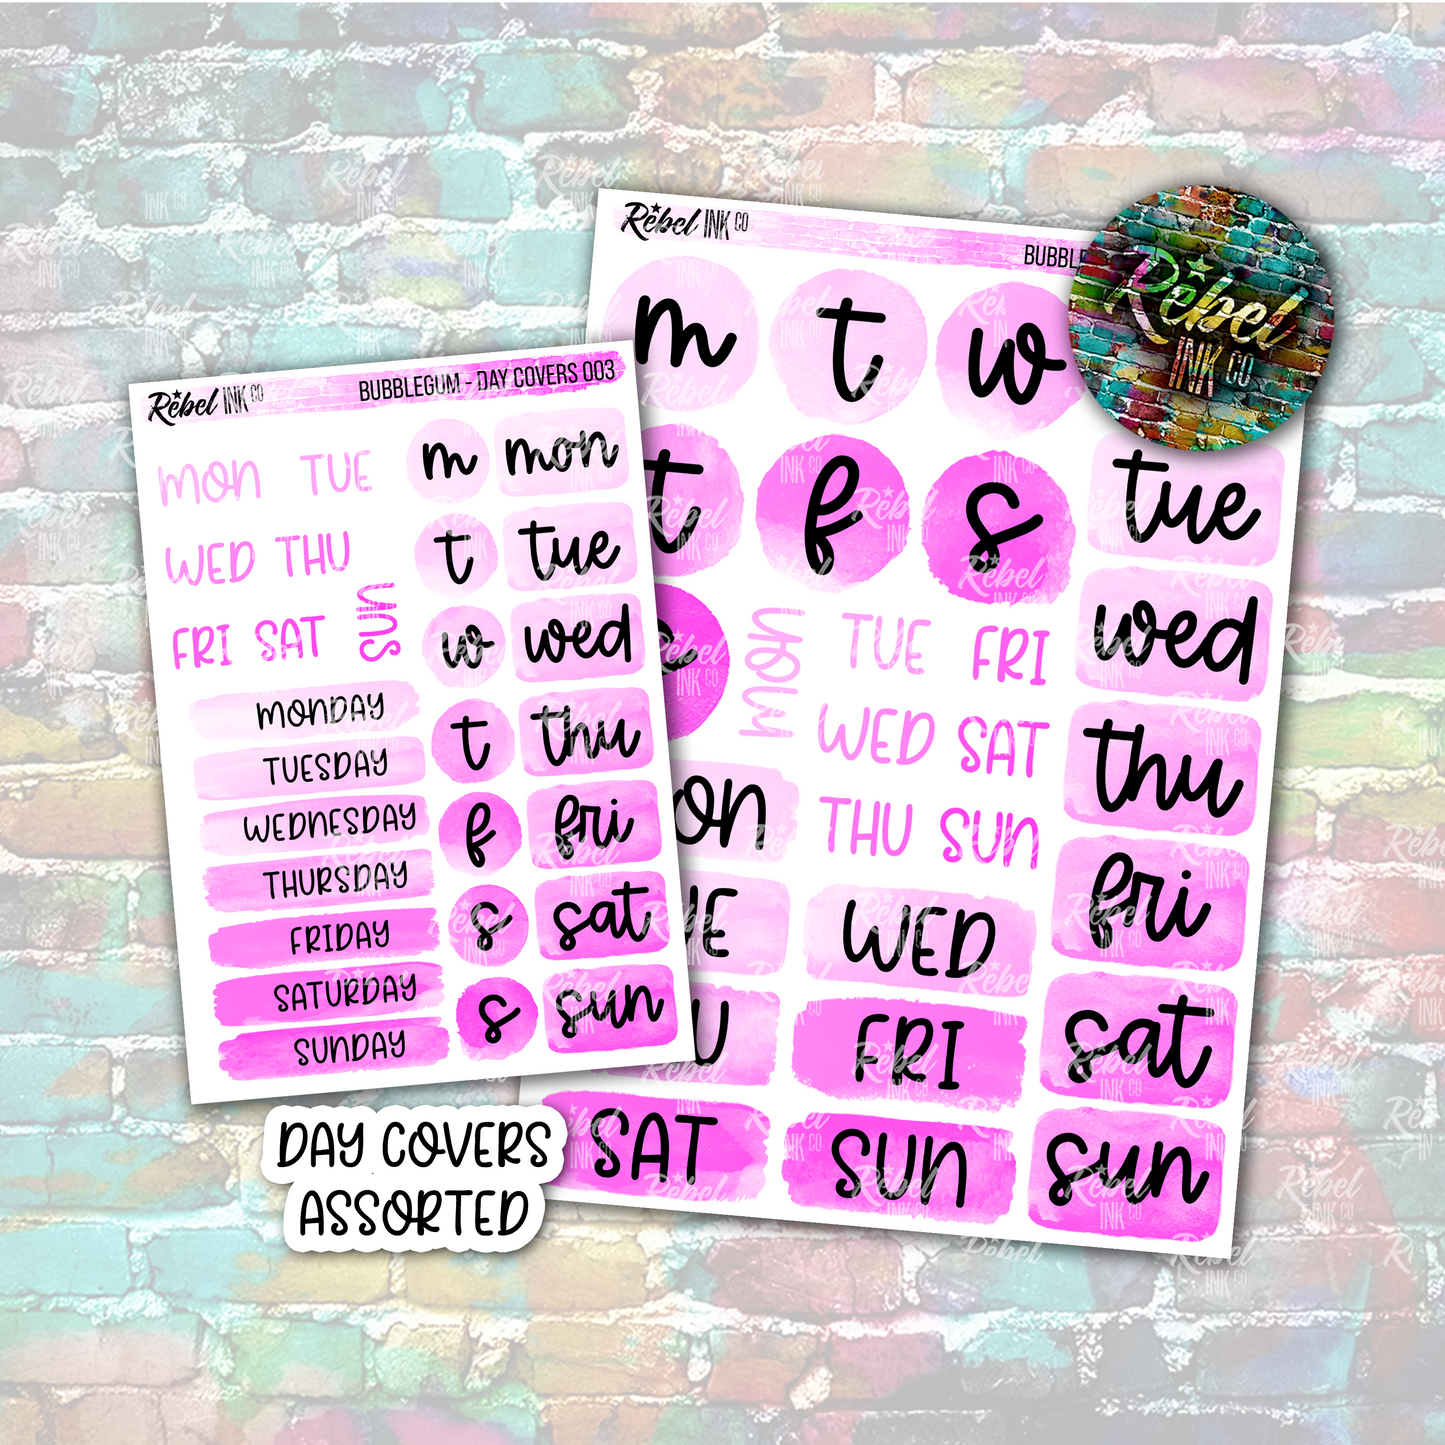 Rebel INK CO
BUBBLEGUM - DAY COVERS 003
MON TUE
WED THU
FRI SAT SUN
MONDAY
TUESDAY
WEDNESDAY
THURSDAY
FRIDAY
SATURDAY
SUNDAY
m mon
t tue
w wed
t thu
f fri
s sat
s sun
DAY COVERS
ASSORTED
Rebel INK CO
m t w
t f s
MON TUE FRI
WED SAT
THU SUN
WED
FRI
SAT SUN
tue
wed
thu
fri
sat
sun
Rebel
INK CO